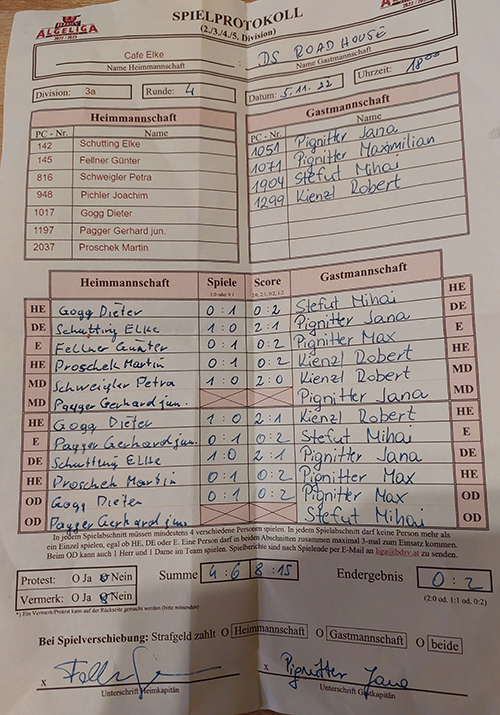 ALGELIGA
2022 / 2023
SPIELPROTOKOLL
(2./3./4./5. Division)
Cafe Elke : DS ROADHOUSE
Name Heimmannschaft Name Gastmannschaft
Division: 3a Runde: 4 Datum: 5.11.22 Uhrzeit: 18⁰⁰
Heimmannschaft
PC - Nr. Name
142 Schutting Elke
145 Fellner Günter
816 Schweigler Petra
948 Pichler Joachim
1017 Gogg Dieter
1197 Pagger Gerhard jun.
2037 Proschek Martin
Gastmannschaft
PC - Nr. Name
1051 Pignitter Jana
1071 Pignitter Maxmilian
1904 Stefut Mihai
1299 Kienzl Robert
Heimmannschaft Spiele Score Gastmannschaft
1:0 oder 0:1 2:0, 2:1, 0:2, 1:2
HE Gogg Dieter 0 : 1 0 : 2 Stefut Mihai HE
DE Schutting Elke 1 : 0 2 : 1 Pignitter Jana DE
E Fellner Günter 0 : 1 0 : 2 Pignitter Max E
HE Proschek Martin 0 : 1 0 : 2 Kienzl Robert HE
MD Schweigler Petra 1 : 0 2 : 0 Kienzl Robert MD
MD Pagger Gerhard jun. Pignitter Jana MD
HE Gogg Dieter 1 : 0 2 : 1 Kienzl Robert HE
E Pagger Gerhard jun. 0 : 1 0 : 2 Stefut Mihai E
DE Schutting Elke 1 : 0 2 : 1 Pignitter Jana DE
HE Proschek Martin 0 : 1 0 : 2 Pignitter Max HE
OD Gogg Dieter 0 : 1 0 : 2 Pignitter Max OD
OD Pagger Gerhard jun Stefut Mihai OD
In jedem Spielabschnitt müssen mindestens 4 verschiedene Personen spielen. In jedem Spielabschnitt darf keine Person mehr als
ein Einzel spielen, egal ob HE, DE oder E. Eine Person darf in beiden Abschnitten zusammen maximal 3-mal zum Einsatz kommen.
Beim OD kann auch 1 Herr und 1 Dame im Team spielen. Spielberichte sind nach Spielende per E-Mail an liga@bdsv.at zu senden.
Protest: O Ja O Nein Summe 4 : 6 8 : 15 Endergebnis 0 : 2
Vermerk: O Ja O Nein (2:0 od. 1:1 od. 0:2)
*) Ein Vermerk/Protest kann auf der Rückseite gemacht werden (bitte mitsenden)
Bei Spielverschiebung: Strafgeld zahlt O Heimmannschaft O Gastmannschaft O beide
x x Pignitter Jana
Unterschrift Heimkapitän Unterschrift Gastkapitän